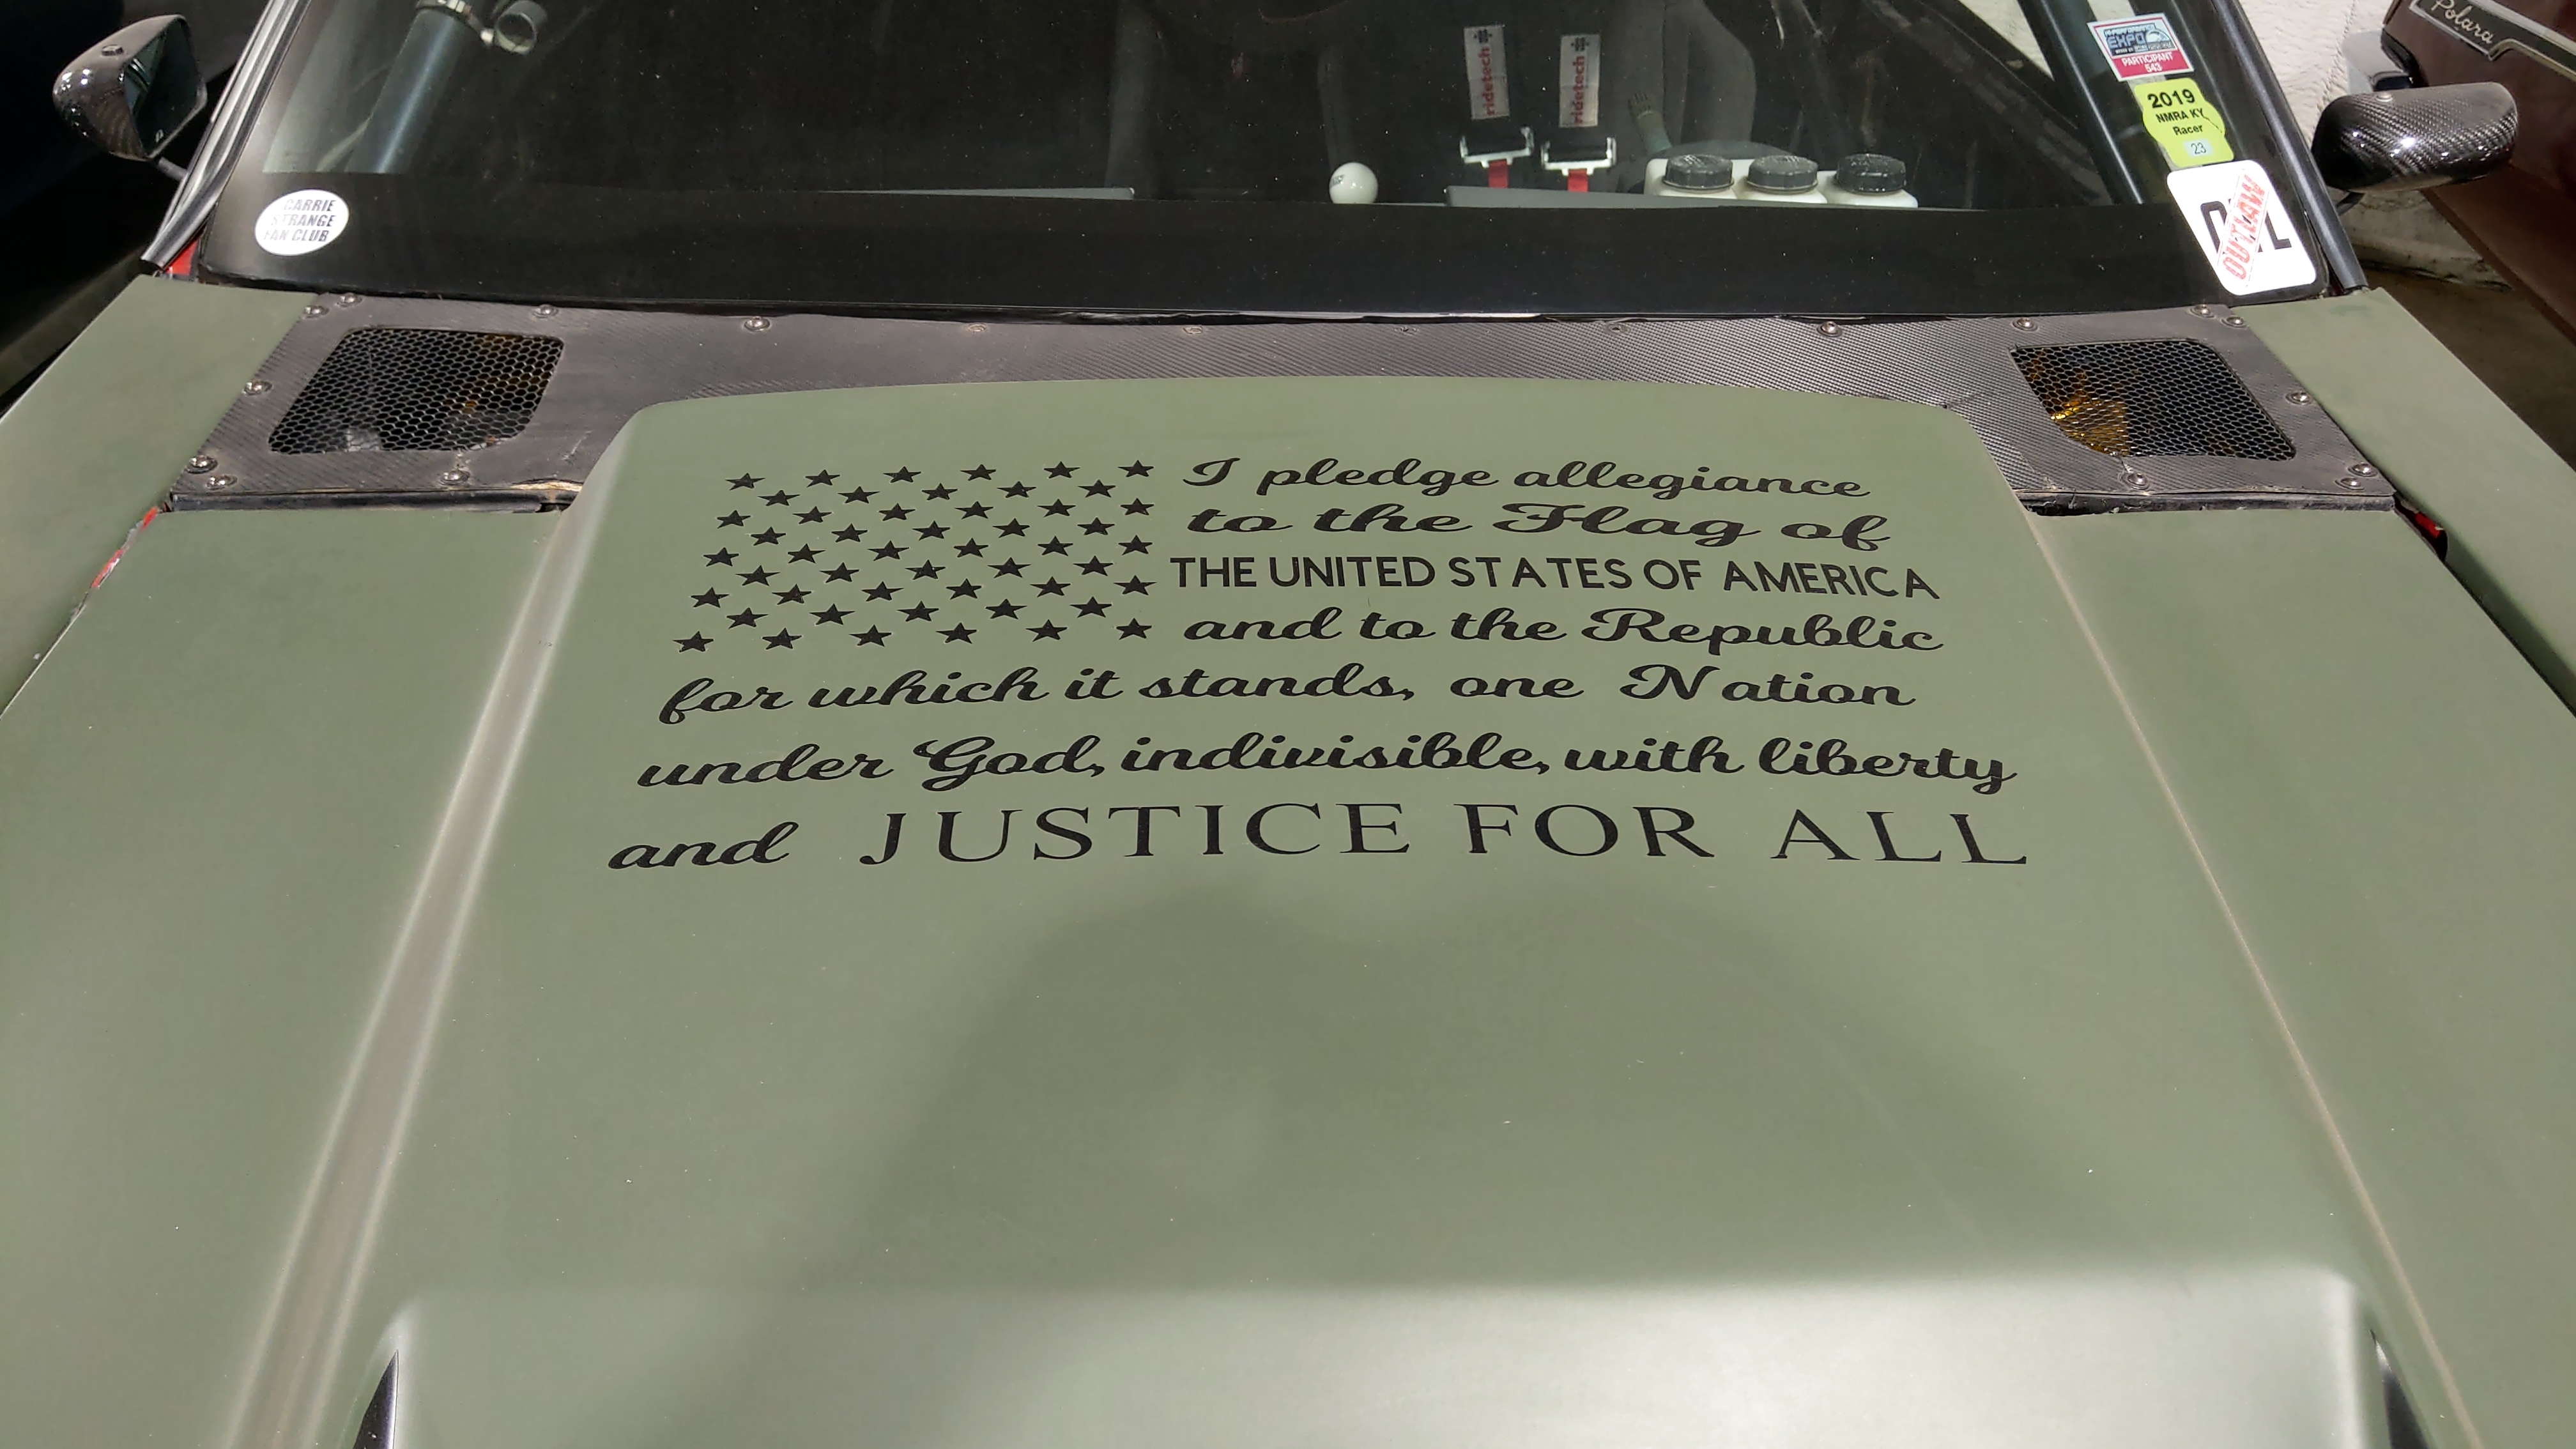 Polara
EXPO
PARTICIPANT
543
ridetech
ridetech
2019
NMRA KY
Racer
23
CARRIE
STRANGE
FAN CLUB
OUTLAW
I pledge allegiance
to the Flag of
THE UNITED STATES OF AMERICA
and to the Republic
for which it stands, one Nation
under God, indivisible, with liberty
and JUSTICE FOR ALL